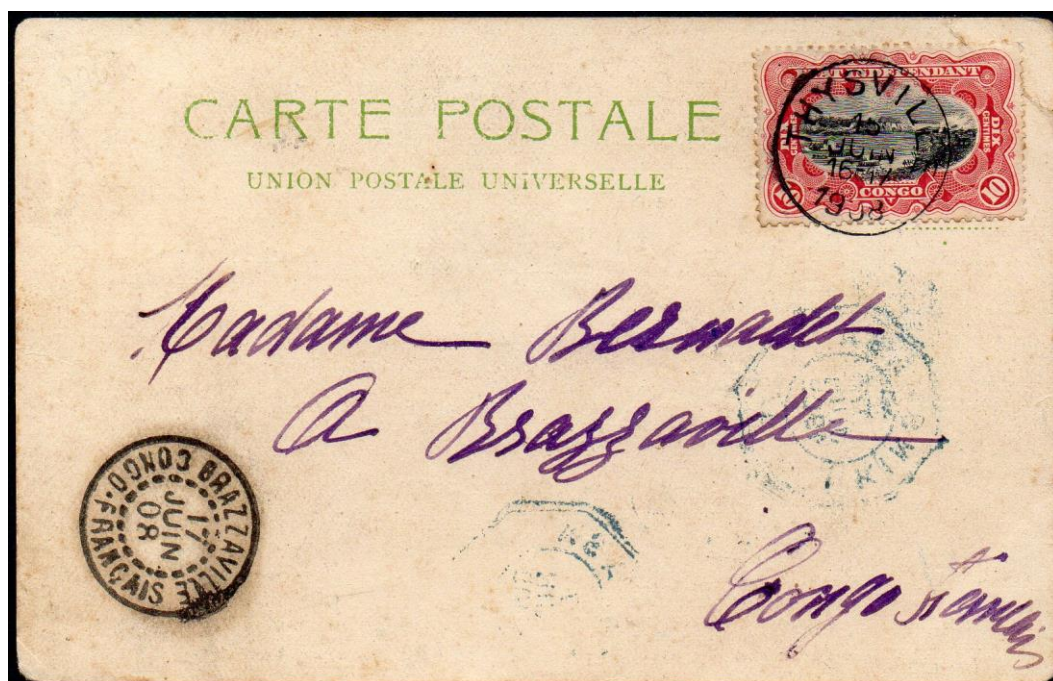 CARTE POSTALE
UNION POSTALE UNIVERSELLE
INDEPENDANT
DIX
CENTIMES
CONGO
10
THYSVILLE
JUIN
16-17
1908
Madame Bernadet
A Brazzaville
Congo Français
BRAZZAVILLE
17
JUIN
08
CONGO-FRANÇAIS